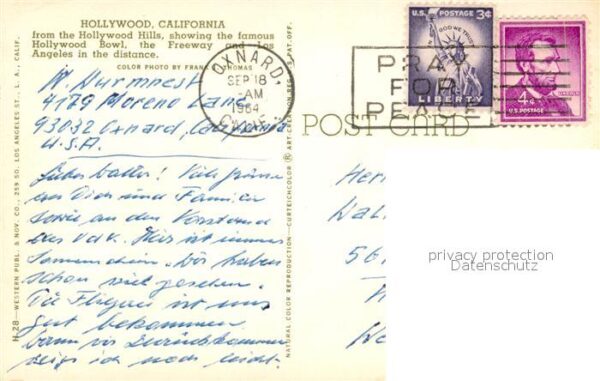 HOLLYWOOD, CALIFORNIA
from the Hollywood Hills, showing the famous
Hollywood Bowl, the Freeway and Los
Angeles in the distance.
COLOR PHOTO BY FRANK THOMAS
W. Durmnest
4179 Moreno Lane
93032 Oxnard, California
U.S.A.
Lieber Walter! Viele Grüsse
an Dich und Familie
sowie an den Vorstand
des VdK. Hier ist immer
Sonnenschein. Wir haben
schon viel gesehen.
Die Flugreise ist uns
gut bekommen.
Wann wir zurückkommen
weiss ich noch nicht.
H-28—WESTERN PUBL. & NOV. CO., 259 SO. LOS ANGELES ST., L. A., CALIF.
NATURAL COLOR REPRODUCTION—CURTEICHCOLOR ® ART CREATION REG. U.S. PAT. OFF.
OXNARD,
SEP 18
-AM
1964
CALIF.
PRAY
FOR
PEACE
U.S. POSTAGE 3¢
IN GOD WE TRUST
LIBERTY
LINCOLN
4¢
U.S. POSTAGE
POST CARD
Her
Wal
56
privacy protection
Datenschutz